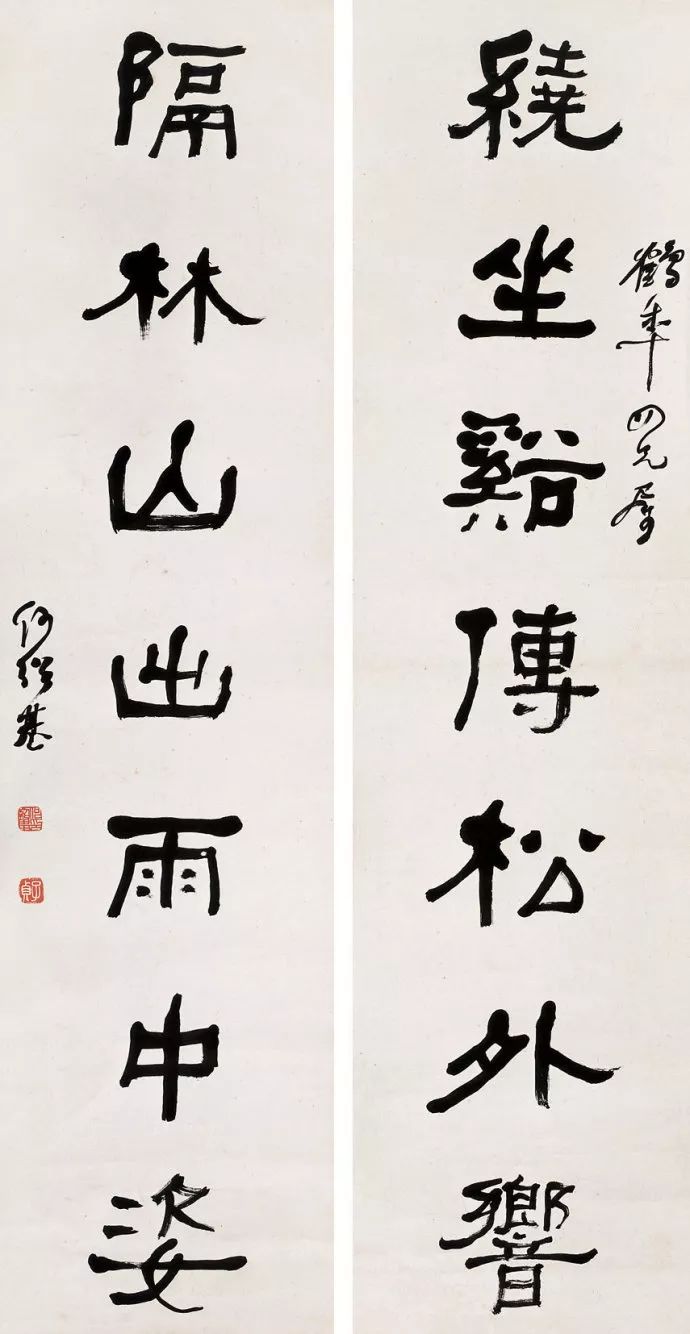 鶴年四兄屬
繞坐谿傳松外響
隔林山出雨中姿
何紹基
子貞